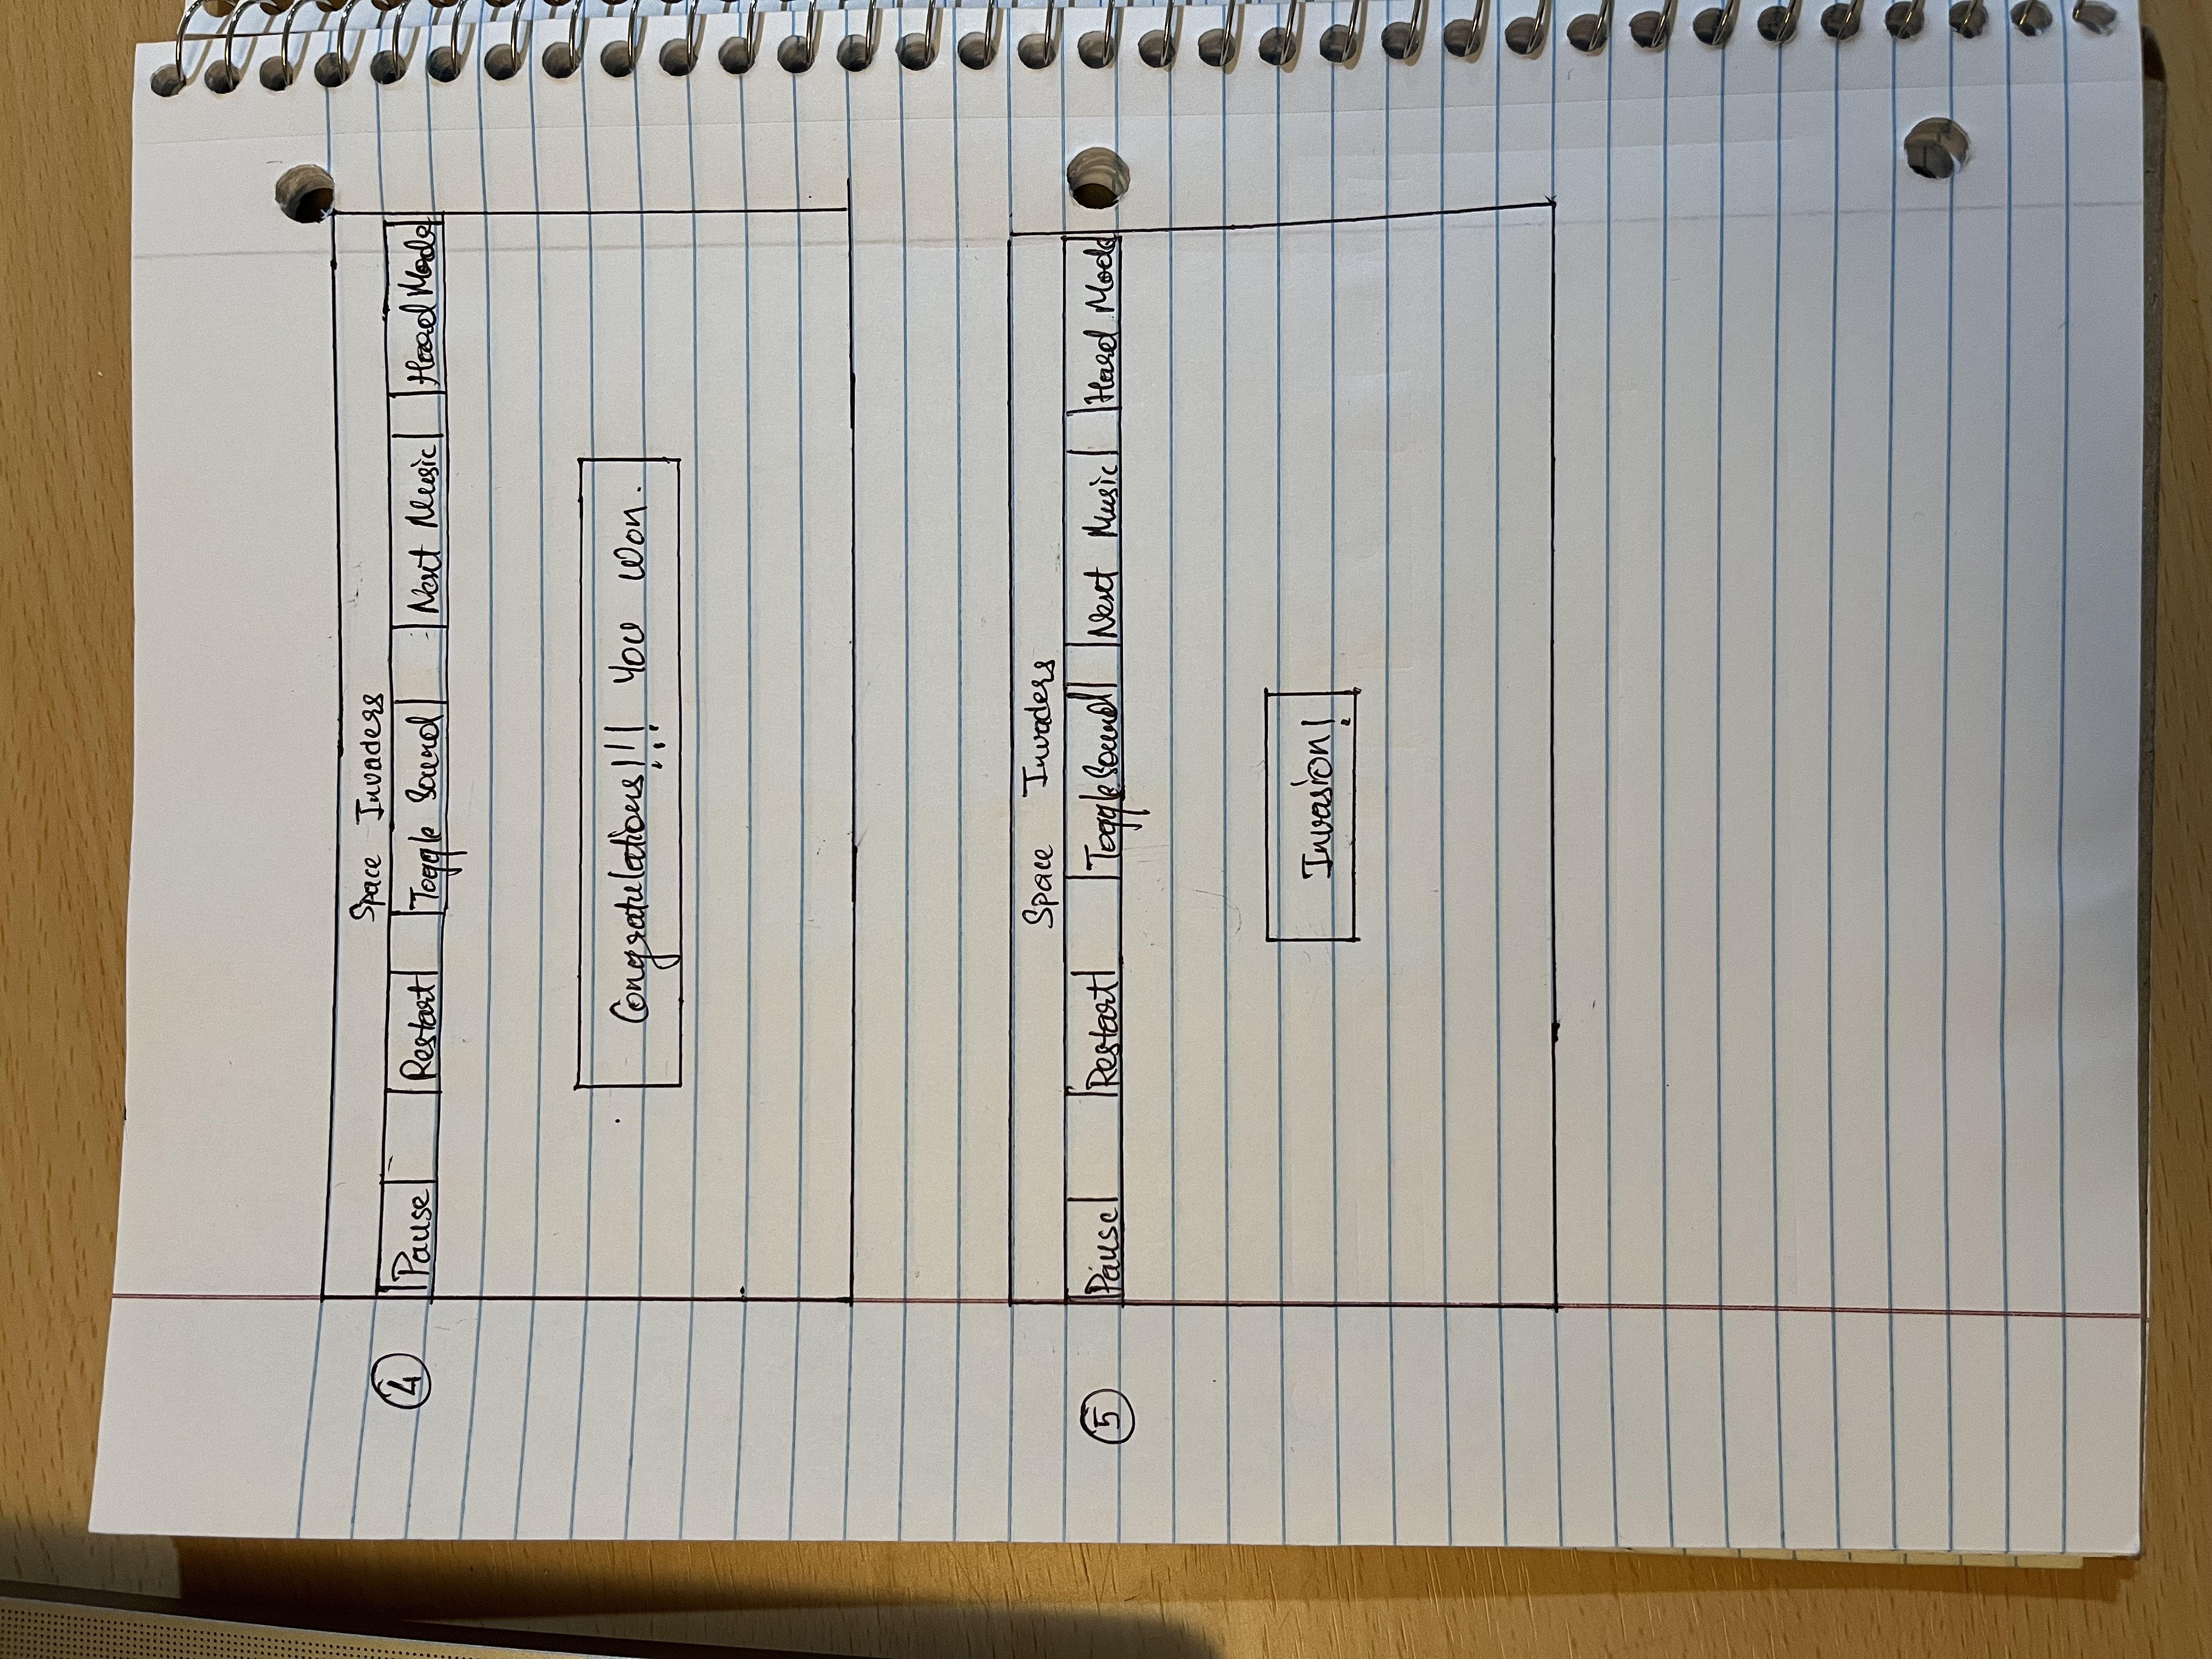 Space Invaders
4
Pause Restart Toggle Sound Next Music Hard Mode
Congratulations!!! You won.
Space Invaders
5
Pause Restart Toggle Sound Next Music Hard Mode
Invasion!